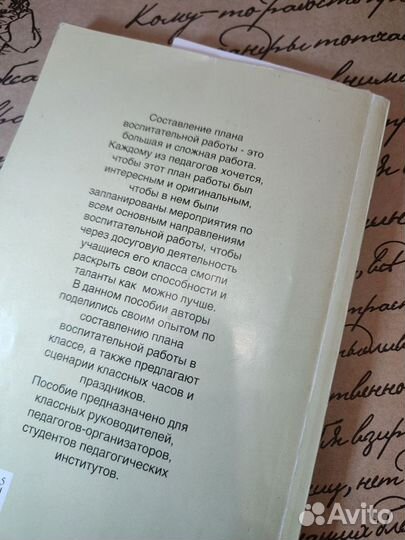 Кому-то радость
тотчас
внима
Составление плана
воспитательной работы - это
большая и сложная работа.
Каждому из педагогов хочется,
чтобы этот план работы был
интересным и оригинальным,
чтобы в нем были
запланированы мероприятия по
всем основным направлениям
воспитательной работы, чтобы
через досуговую деятельность
учащиеся его класса смогли
раскрыть свои способности и
таланты как можно лучше.
В данном пособии авторы
поделились своим опытом по
составлению плана
воспитательной работы в
классе, а также предлагают
сценарии классных часов и
праздников.
Пособие предназначено для
классных руководителей,
педагогов-организаторов,
студентов педагогических
институтов.
Avito